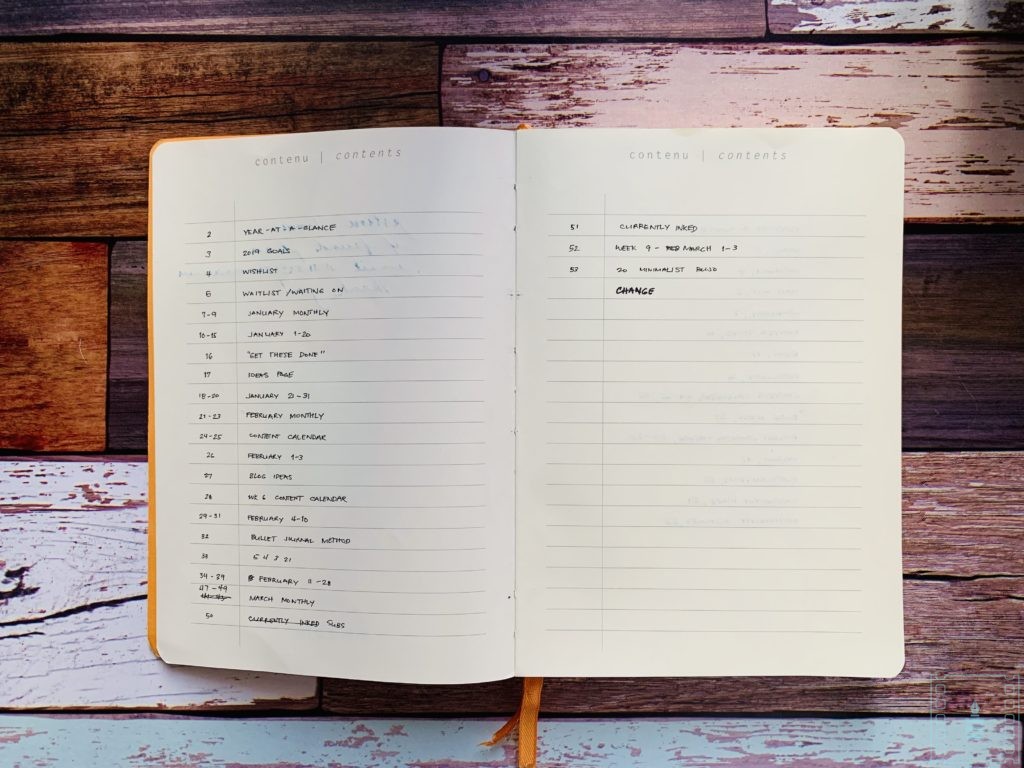 contenu | contents
2 YEAR-AT-A-GLANCE
3 2019 GOALS
4 WISHLIST
5 WAITLIST/WAITING ON
7-9 JANUARY MONTHLY
10-15 JANUARY 1-20
16 "GET THESE DONE"
17 IDEAS PAGE
18-20 JANUARY 21-31
21-23 FEBRUARY MONTHLY
24-25 CONTENT CALENDAR
26 FEBRUARY 1-3
27 BLOG IDEAS
28 WK 6 CONTENT CALENDAR
29-31 FEBRUARY 4-10
32 BULLET JOURNAL METHOD
33 5 4 3 21
34-39 FEBRUARY 11-28
47-49 MARCH MONTHLY
50 CURRENTLY INKED SUBS
contenu | contents
51 CURRENTLY INKED
52 WEEK 9 - MARCH 1-3
53 20 MINIMALIST BUJO
CHANGE